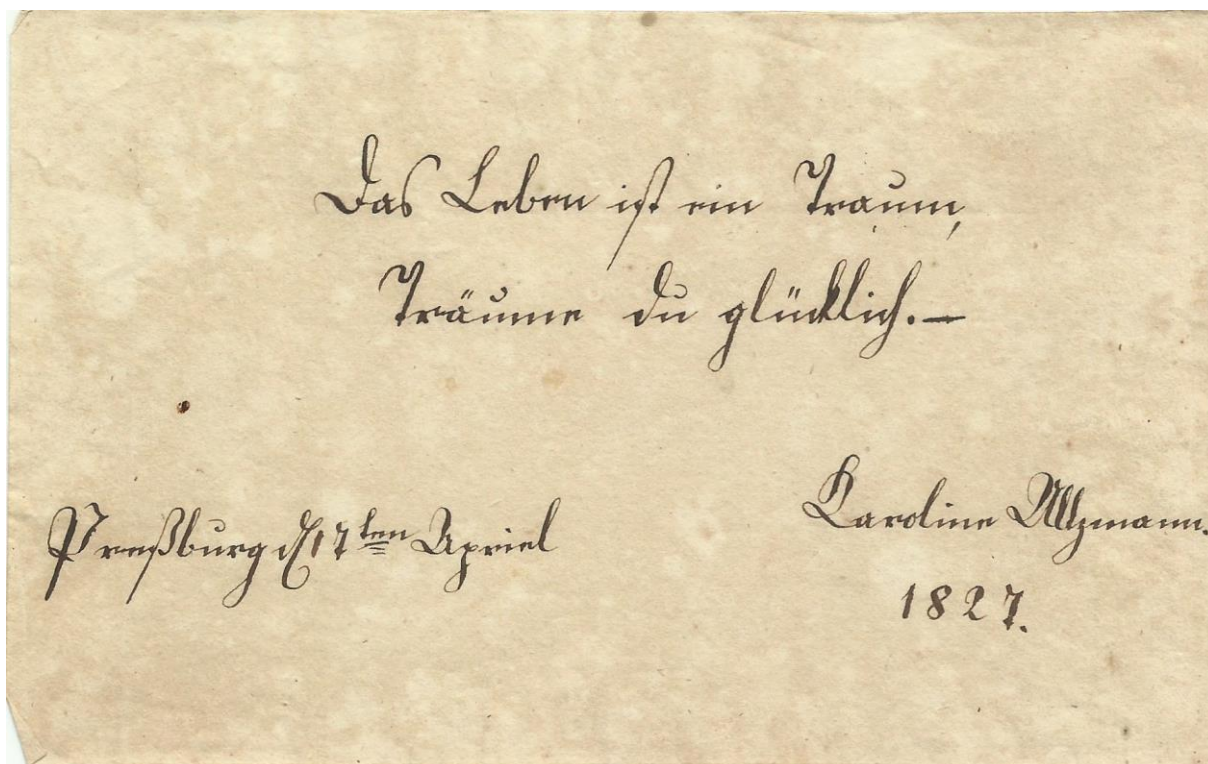 Das Leben ist ein Traum,
Träume du glücklich.—
Preßburg d 17ten Apriel
Karoline
1827.